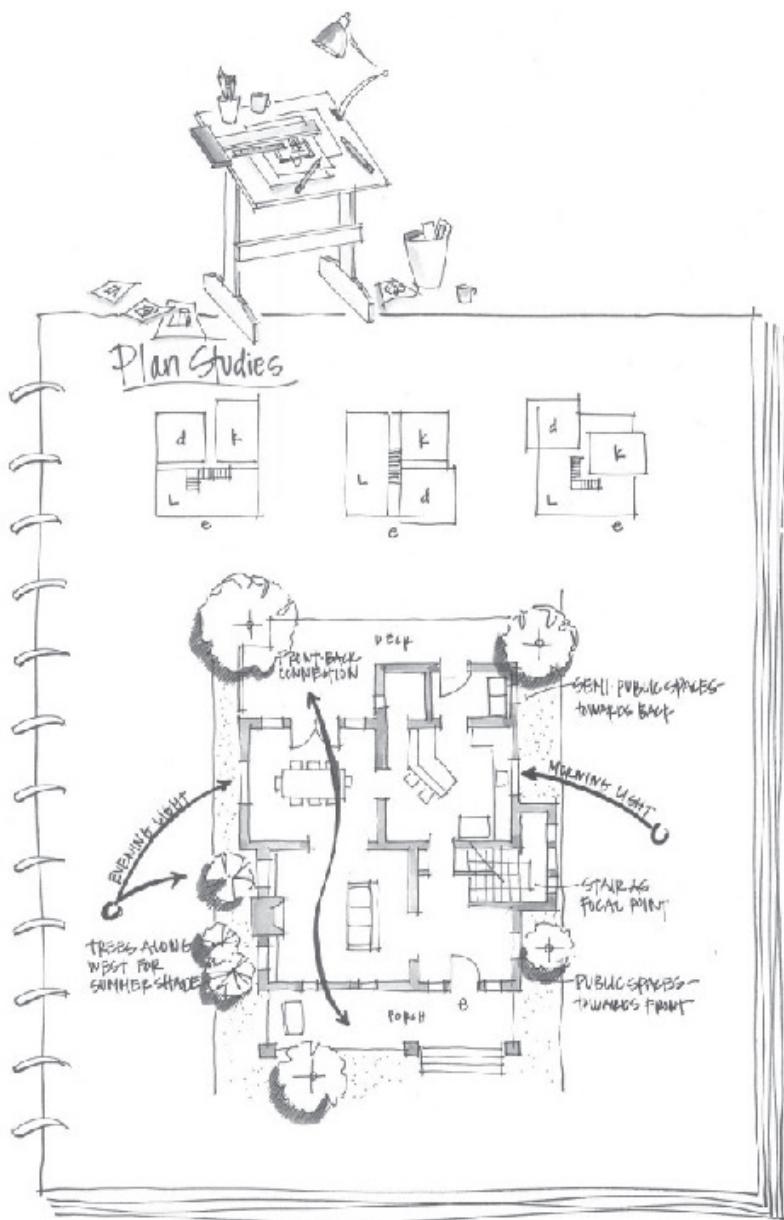 Plan Studies
d
k
L
e
k
L
d
e
d
k
L
e
DECK
FRONT-BACK
CONNECTION
SEMI-PUBLIC SPACES-
TOWARDS BACK
EVENING LIGHT
MORNING LIGHT
STAIR AS
FOCAL POINT
TREES ALONG
WEST FOR
SUMMER SHADE
PUBLIC SPACES-
TOWARDS FRONT
e
PORCH